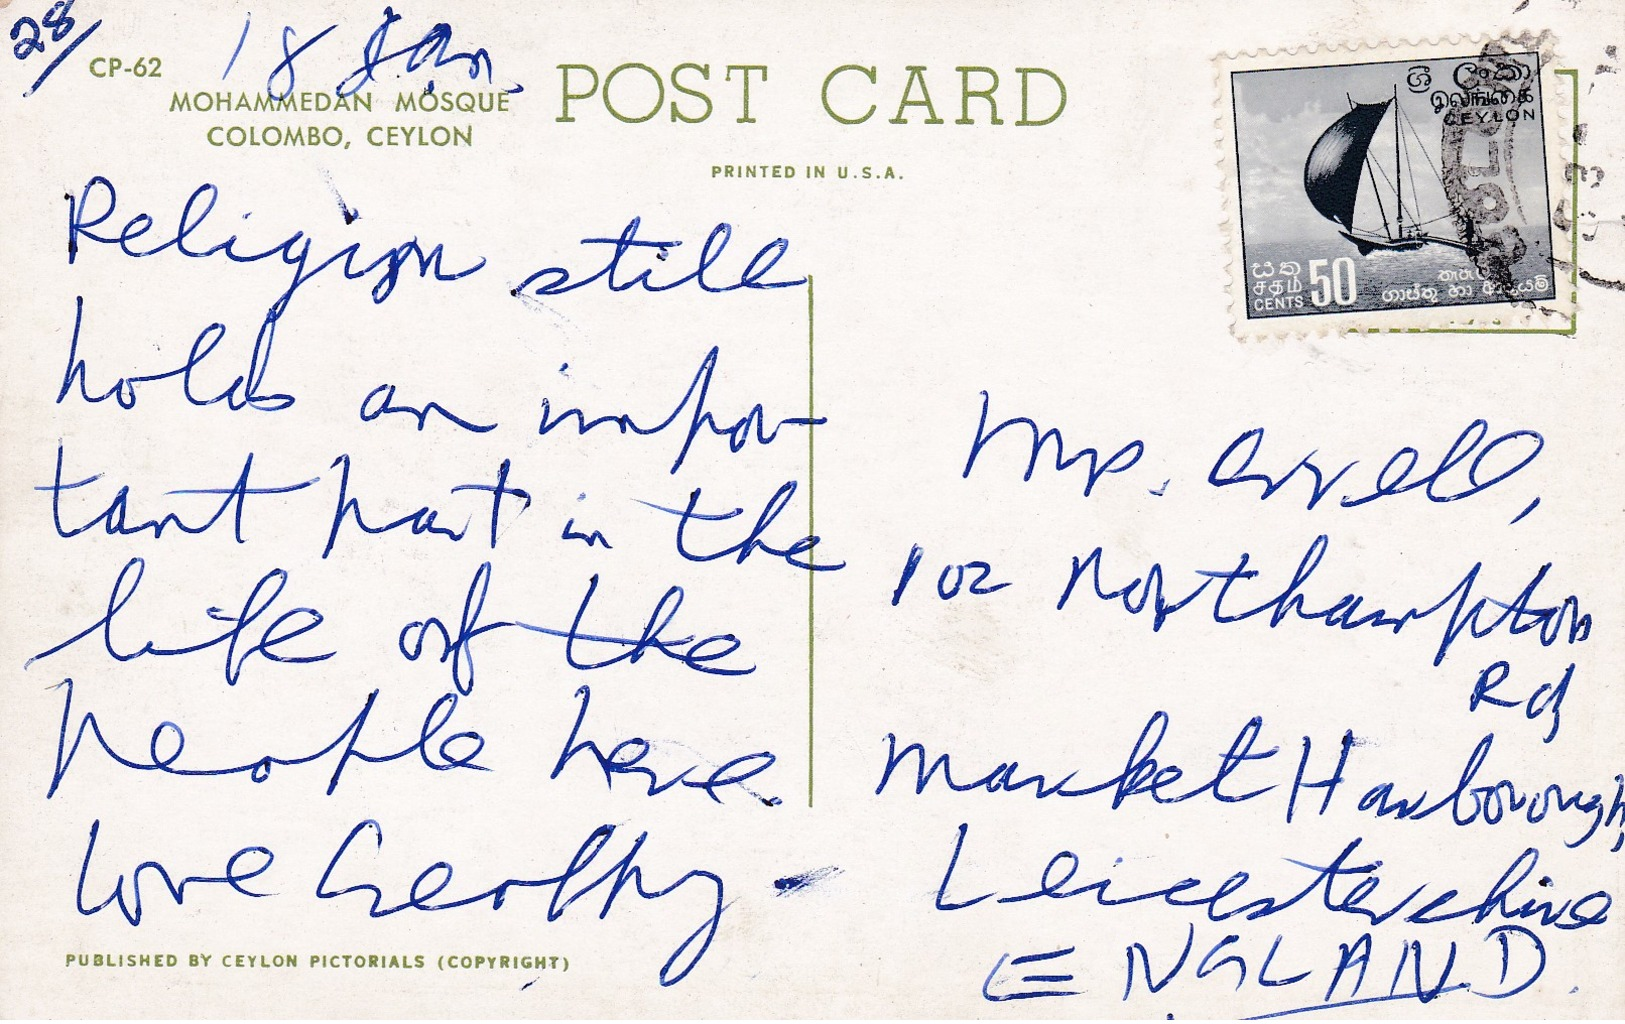 28/
18 Jan
CP-62
MOHAMMEDAN MOSQUE
COLOMBO, CEYLON
POST CARD
PRINTED IN U.S.A.
ශ්‍රී ලංකා
இலங்கை
CEYLON
සත
சதம்
CENTS 50
Religion still
holds an impor-
tant part in the
life of the
people here.
Love Geoffry
Mrs. Orrell,
102 Northampton
Rd,
Market Harborough,
Leicestershire
ENGLAND.
PUBLISHED BY CEYLON PICTORIALS (COPYRIGHT)